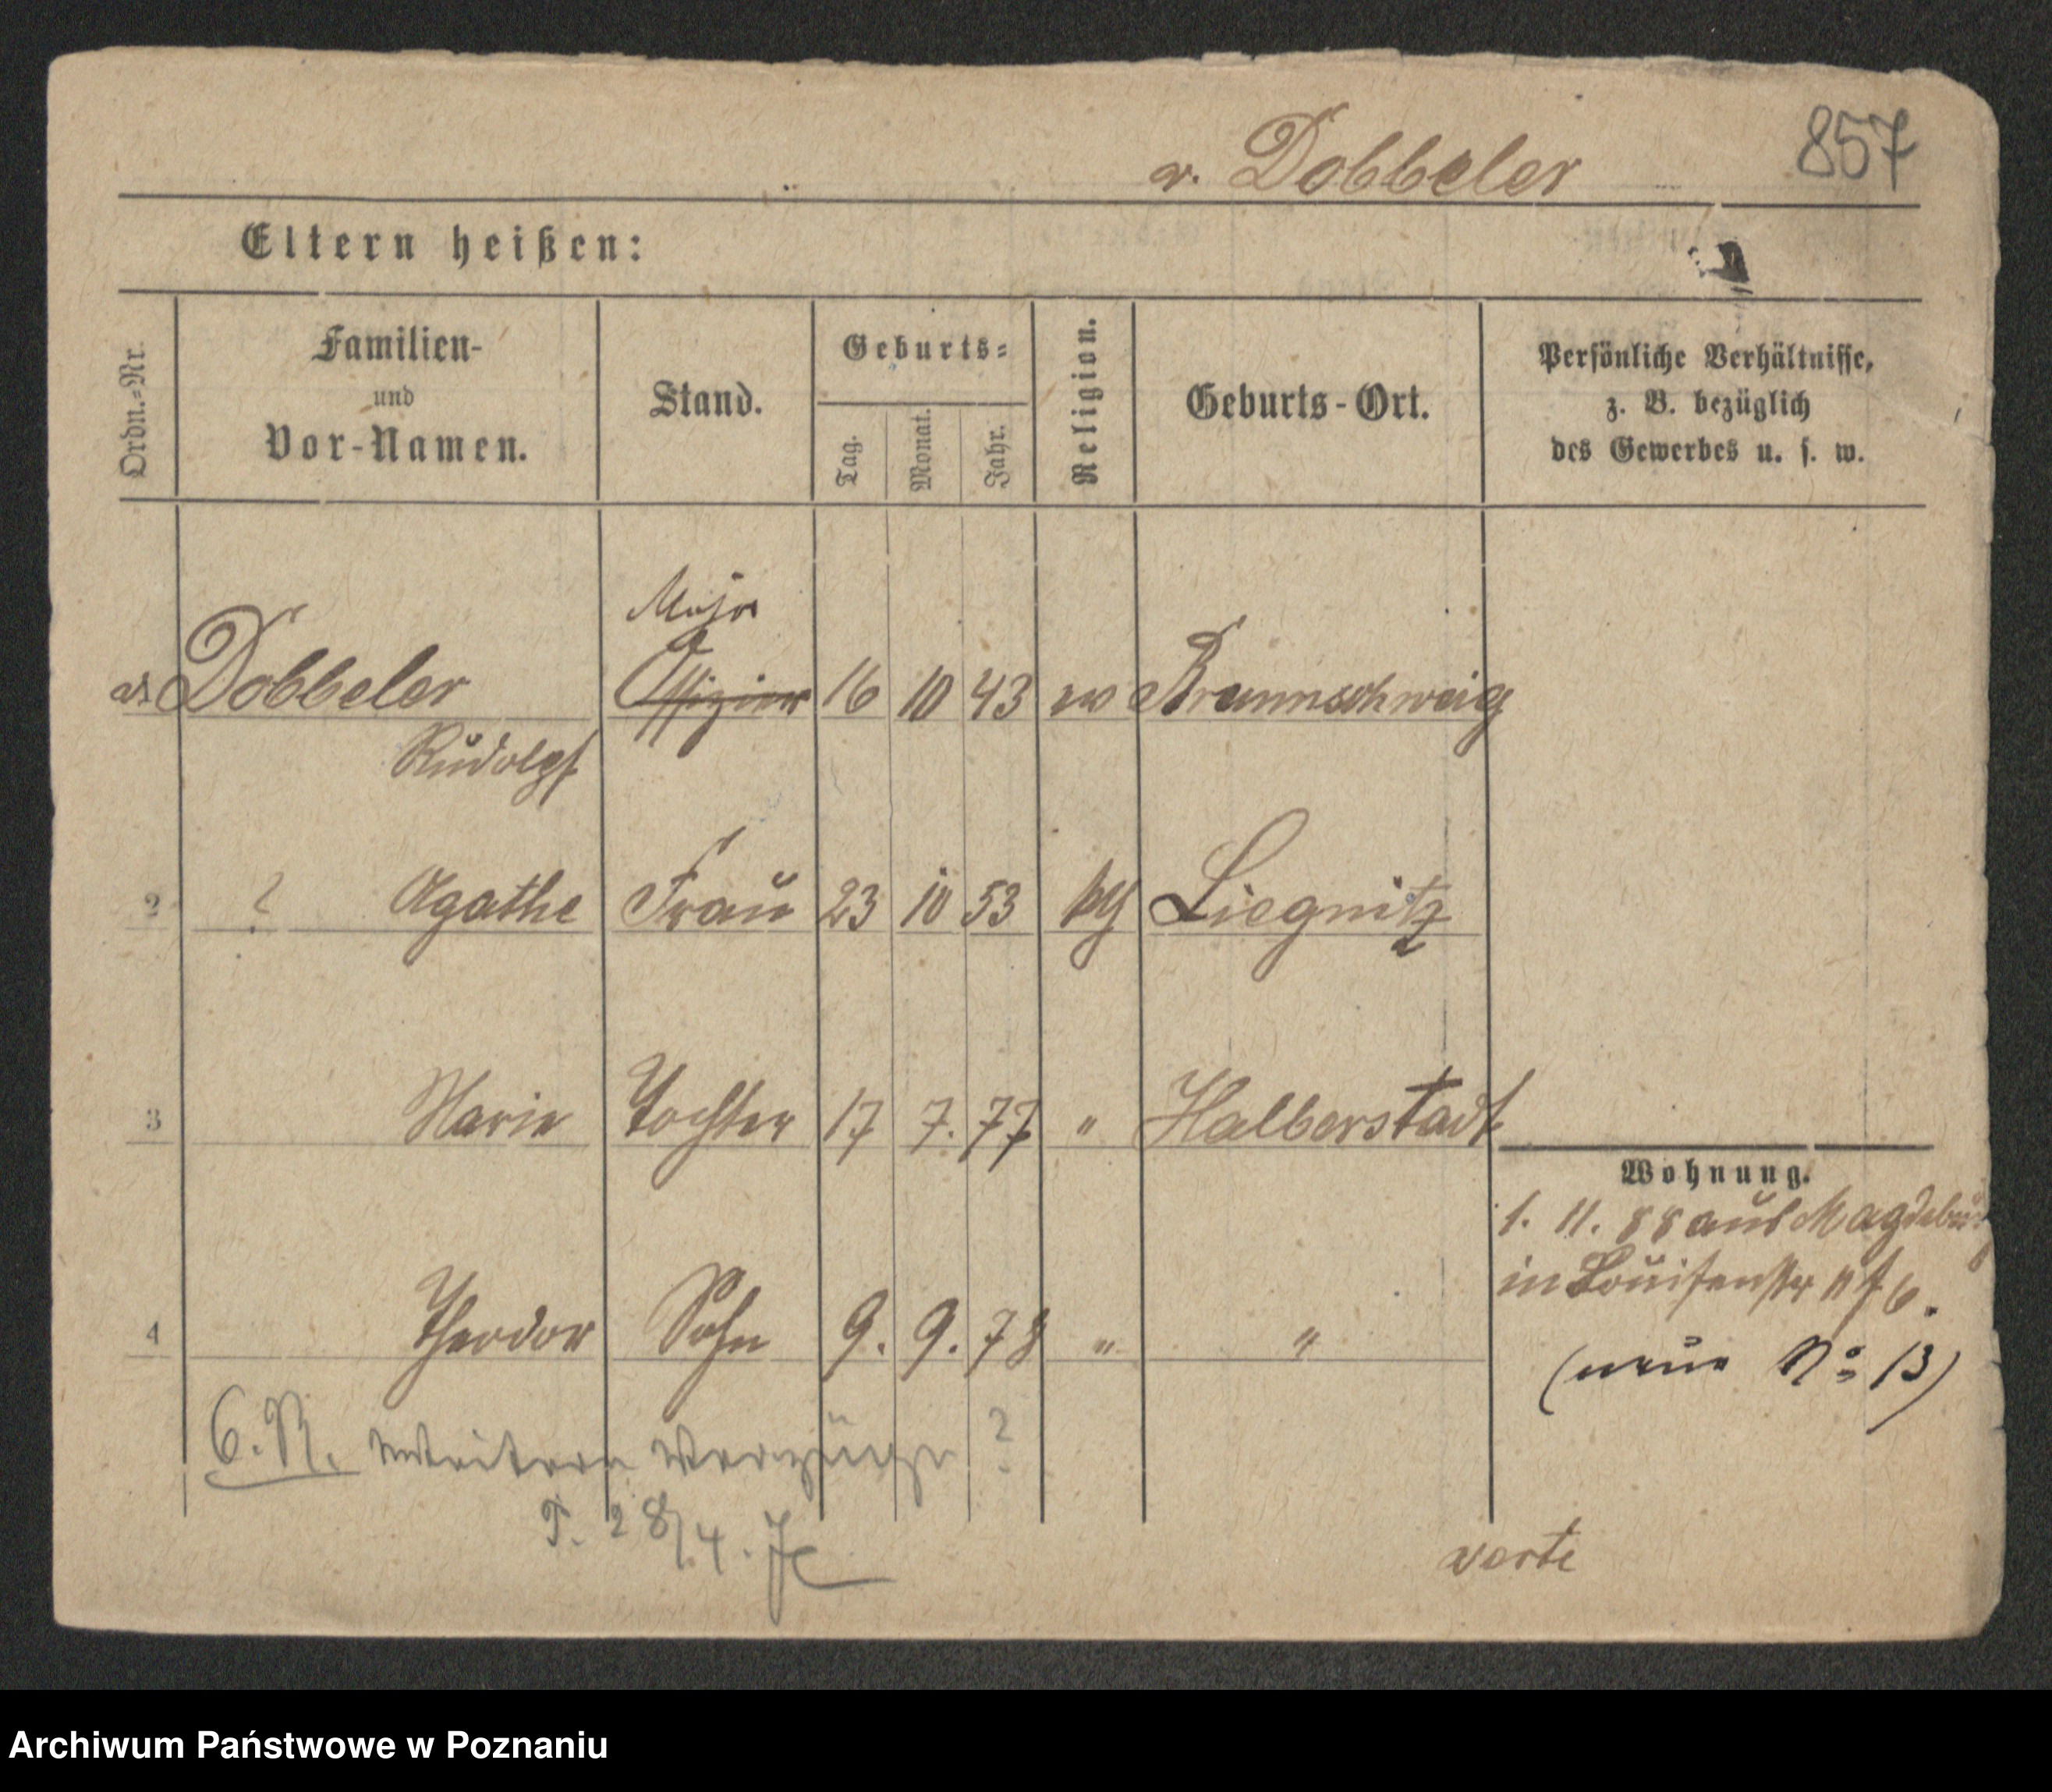 v. Dobbeler 857
Eltern heißen:
Ordn.-Nr. Familien- und Vor-Namen. Stand. Geburts= Tag. Monat. Jahr. Religion. Geburts-Ort. Persönliche Verhältnisse, z. B. bezüglich des Gewerbes u. s. w.
Major
v. Dobbeler Offizier 16 10 43 ev Braunschweig
Rudolph
2 ? Agathe Frau 23 10 53 kth Liegnitz
3 Marie Tochter 17 7. 77 " Halberstadt
Wohnung.
1. 11. 88 aus Magdeburg
in Louisenstr 6.
4 Theodor Sohn 9. 9. 78 " "
(neue No 13)
C. R. weitere Verzüge ?
P. 28/4.
verte
Archiwum Państwowe w Poznaniu